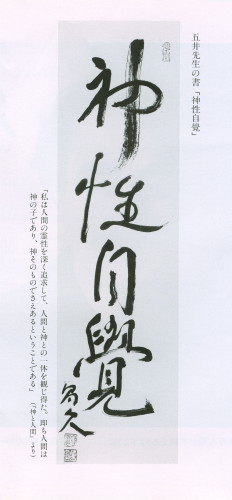 五井先生の書「神性自覺」
神性自覺
昌久
「私は人間の霊性を深く追求して、人間と神との一体を観じ得た。即ち人間は
神の子であり、神そのものでさえあるということである」
（『神と人間』より）